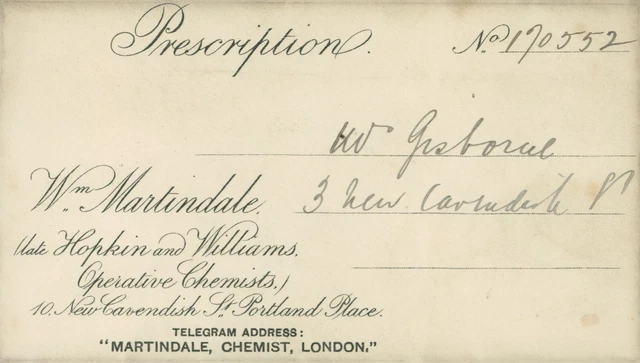 Prescription. No 170552
Mr Gisborne
Wm. Martindale. 3 New Cavendish St
(late Hopkin and Williams,
Operative Chemists,)
10. New Cavendish St. Portland Place.
TELEGRAM ADDRESS:
"MARTINDALE, CHEMIST, LONDON."